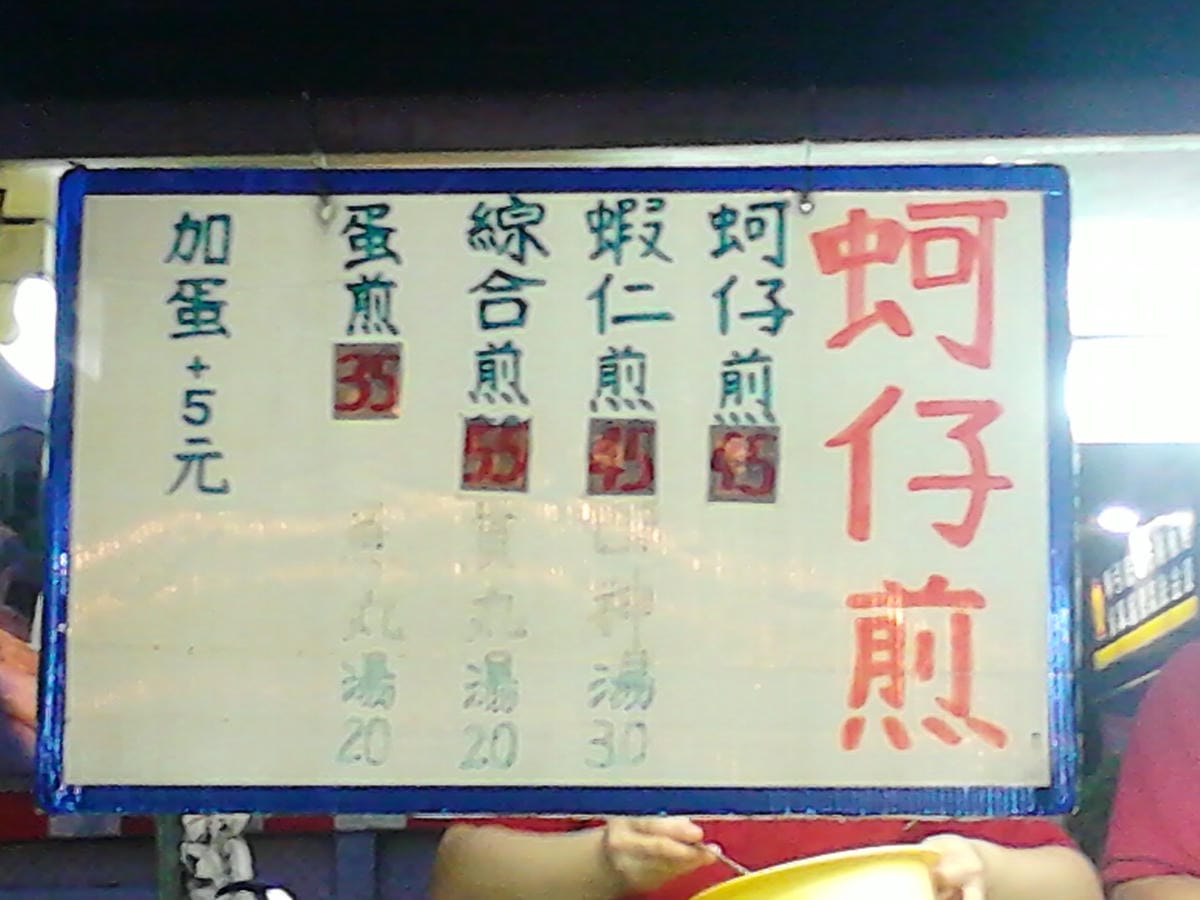 蚵仔煎
蚵仔煎
蝦仁煎 45
綜合煎 55
蛋煎 35
加蛋+5元
四神湯 30
貢丸湯 20
丸湯 20